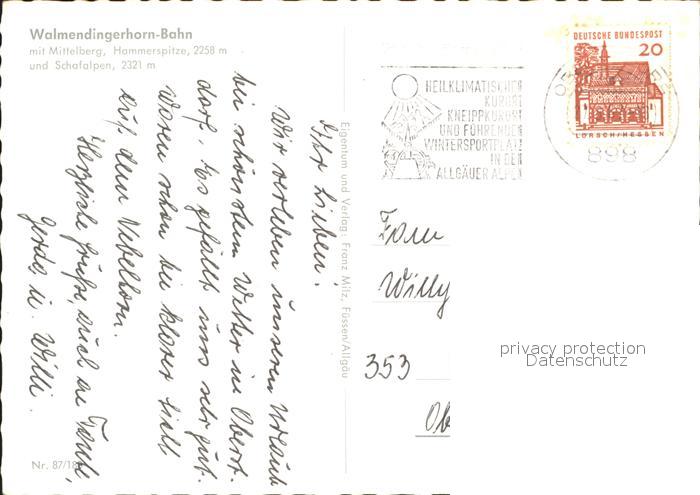 Walmendingerhorn-Bahn
mit Mittelberg, Hammerspitze, 2258 m
und Schafalpen, 2321 m
Ihr Lieben!
Wir verleben unseren Urlaub
bei schönstem Wetter in Oberst-
dorf. Es gefällt uns sehr gut.
Waren schon bei klarer Sicht
auf dem Nebelhorn.
Herzliche Grüße, auch an
Gerda u. Willi.
Nr. 87/18
Eigentum und Verlag: Franz Milz, Füssen/Allgäu
HEILKLIMATISCHER
KURORT
KNEIPPKURORT
UND FÜHRENDER
WINTERSPORTPLATZ
IN DEN
ALLGÄUER ALPEN
DEUTSCHE BUNDESPOST
20
LORSCH/HESSEN
898
Fam
Willy
353
Ob
privacy protection
Datenschutz